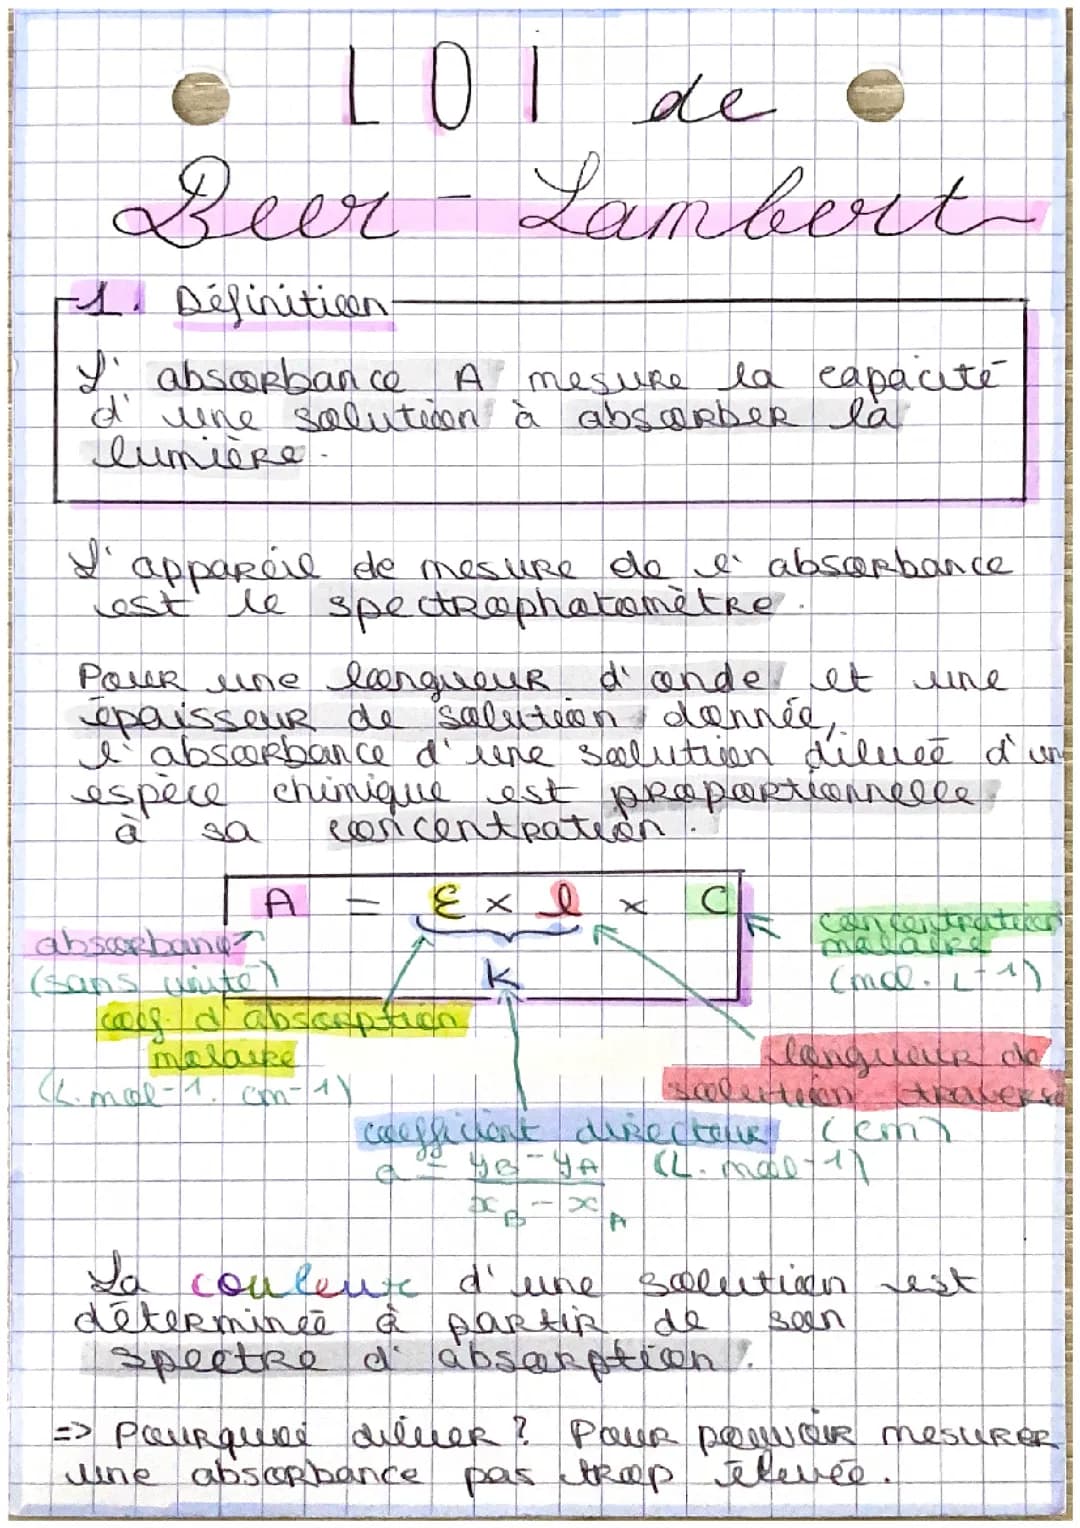 LOI de
Beer-Lambert
1. Définition
L'absorbance A mesure la capacité
d'une solution à absorber la
lumière.
L'appareil de mesure de l'absorbance
est le spectrophotomètre.
Pour une longueur d'onde et une
épaisseur de solution donnée,
l'absorbance d'une solution diluée d'un
espèce chimique est proportionnelle
à sa concentration.
A = ε × l × C
absorbance
(sans unité)
k
concentration
molaire
(mol. L-1)
coef. d'absorption
molaire
(L.mol-1. cm-1)
longueur de
solution traversé
(cm)
coefficient directeur
a = yB - yA
xB - xA
(L. mol-1)
La couleur d'une solution est
déterminée à partir de son
spectre d'absorption.
=> Pourquoi diluer ? Pour pouvoir mesurer
une absorbance pas trop élevée.